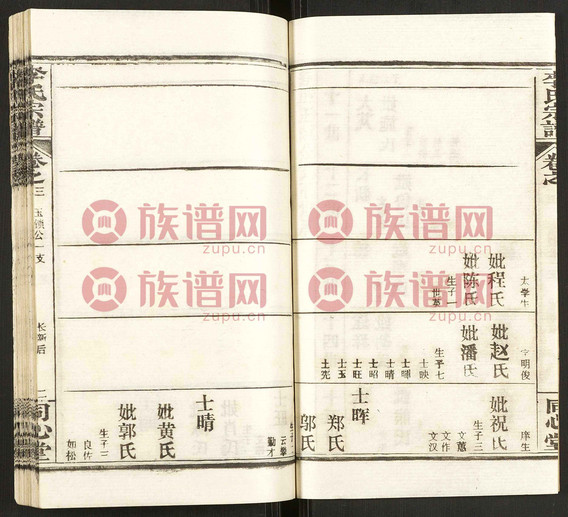 李氏宗譜
卷之
同心堂
太學生
妣程氏
妣陈氏
生子一
字明俊
妣赵氏
妣潘氏
生子七
士映
士暉
士晴
士昭
士旺
士玉
士宪
庠生
妣祝氏
生子三
文蕙
文作
文汉
士晖
郑氏
邬氏
生子二
云擧
勤才
士晴
妣黄氏
妣郭氏
生子二
良佐
如松
李氏宗譜
卷之三
玉锁公一支
长新后
同心堂
族谱网
zupu.cn
族谱网
zupu.cn
族谱网
zupu.cn
族谱网
zupu.cn